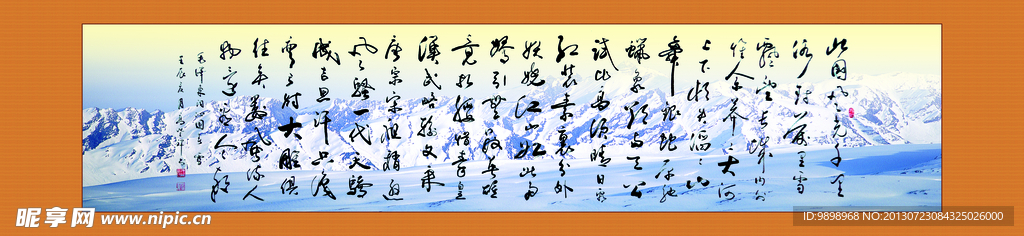 北国风光千里
冰封万里雪
飘望长城内外
惟余莽莽大河
上下顿失滔滔山
舞银蛇原驰
蜡象欲与天公
试比高须晴日看
红装素裹分外
妖娆江山如此多
娇引无数英雄
竞折腰惜秦皇
汉武略输文采
唐宗宋祖稍逊
风骚一代天骄
成吉思汗只识
弯弓射大雕俱
往矣数风流人
物还看今朝
毛泽东词沁园春雪
壬辰夏月
昵享网 www.nipic.cn
ID:9898968 NO:20130723084325026000